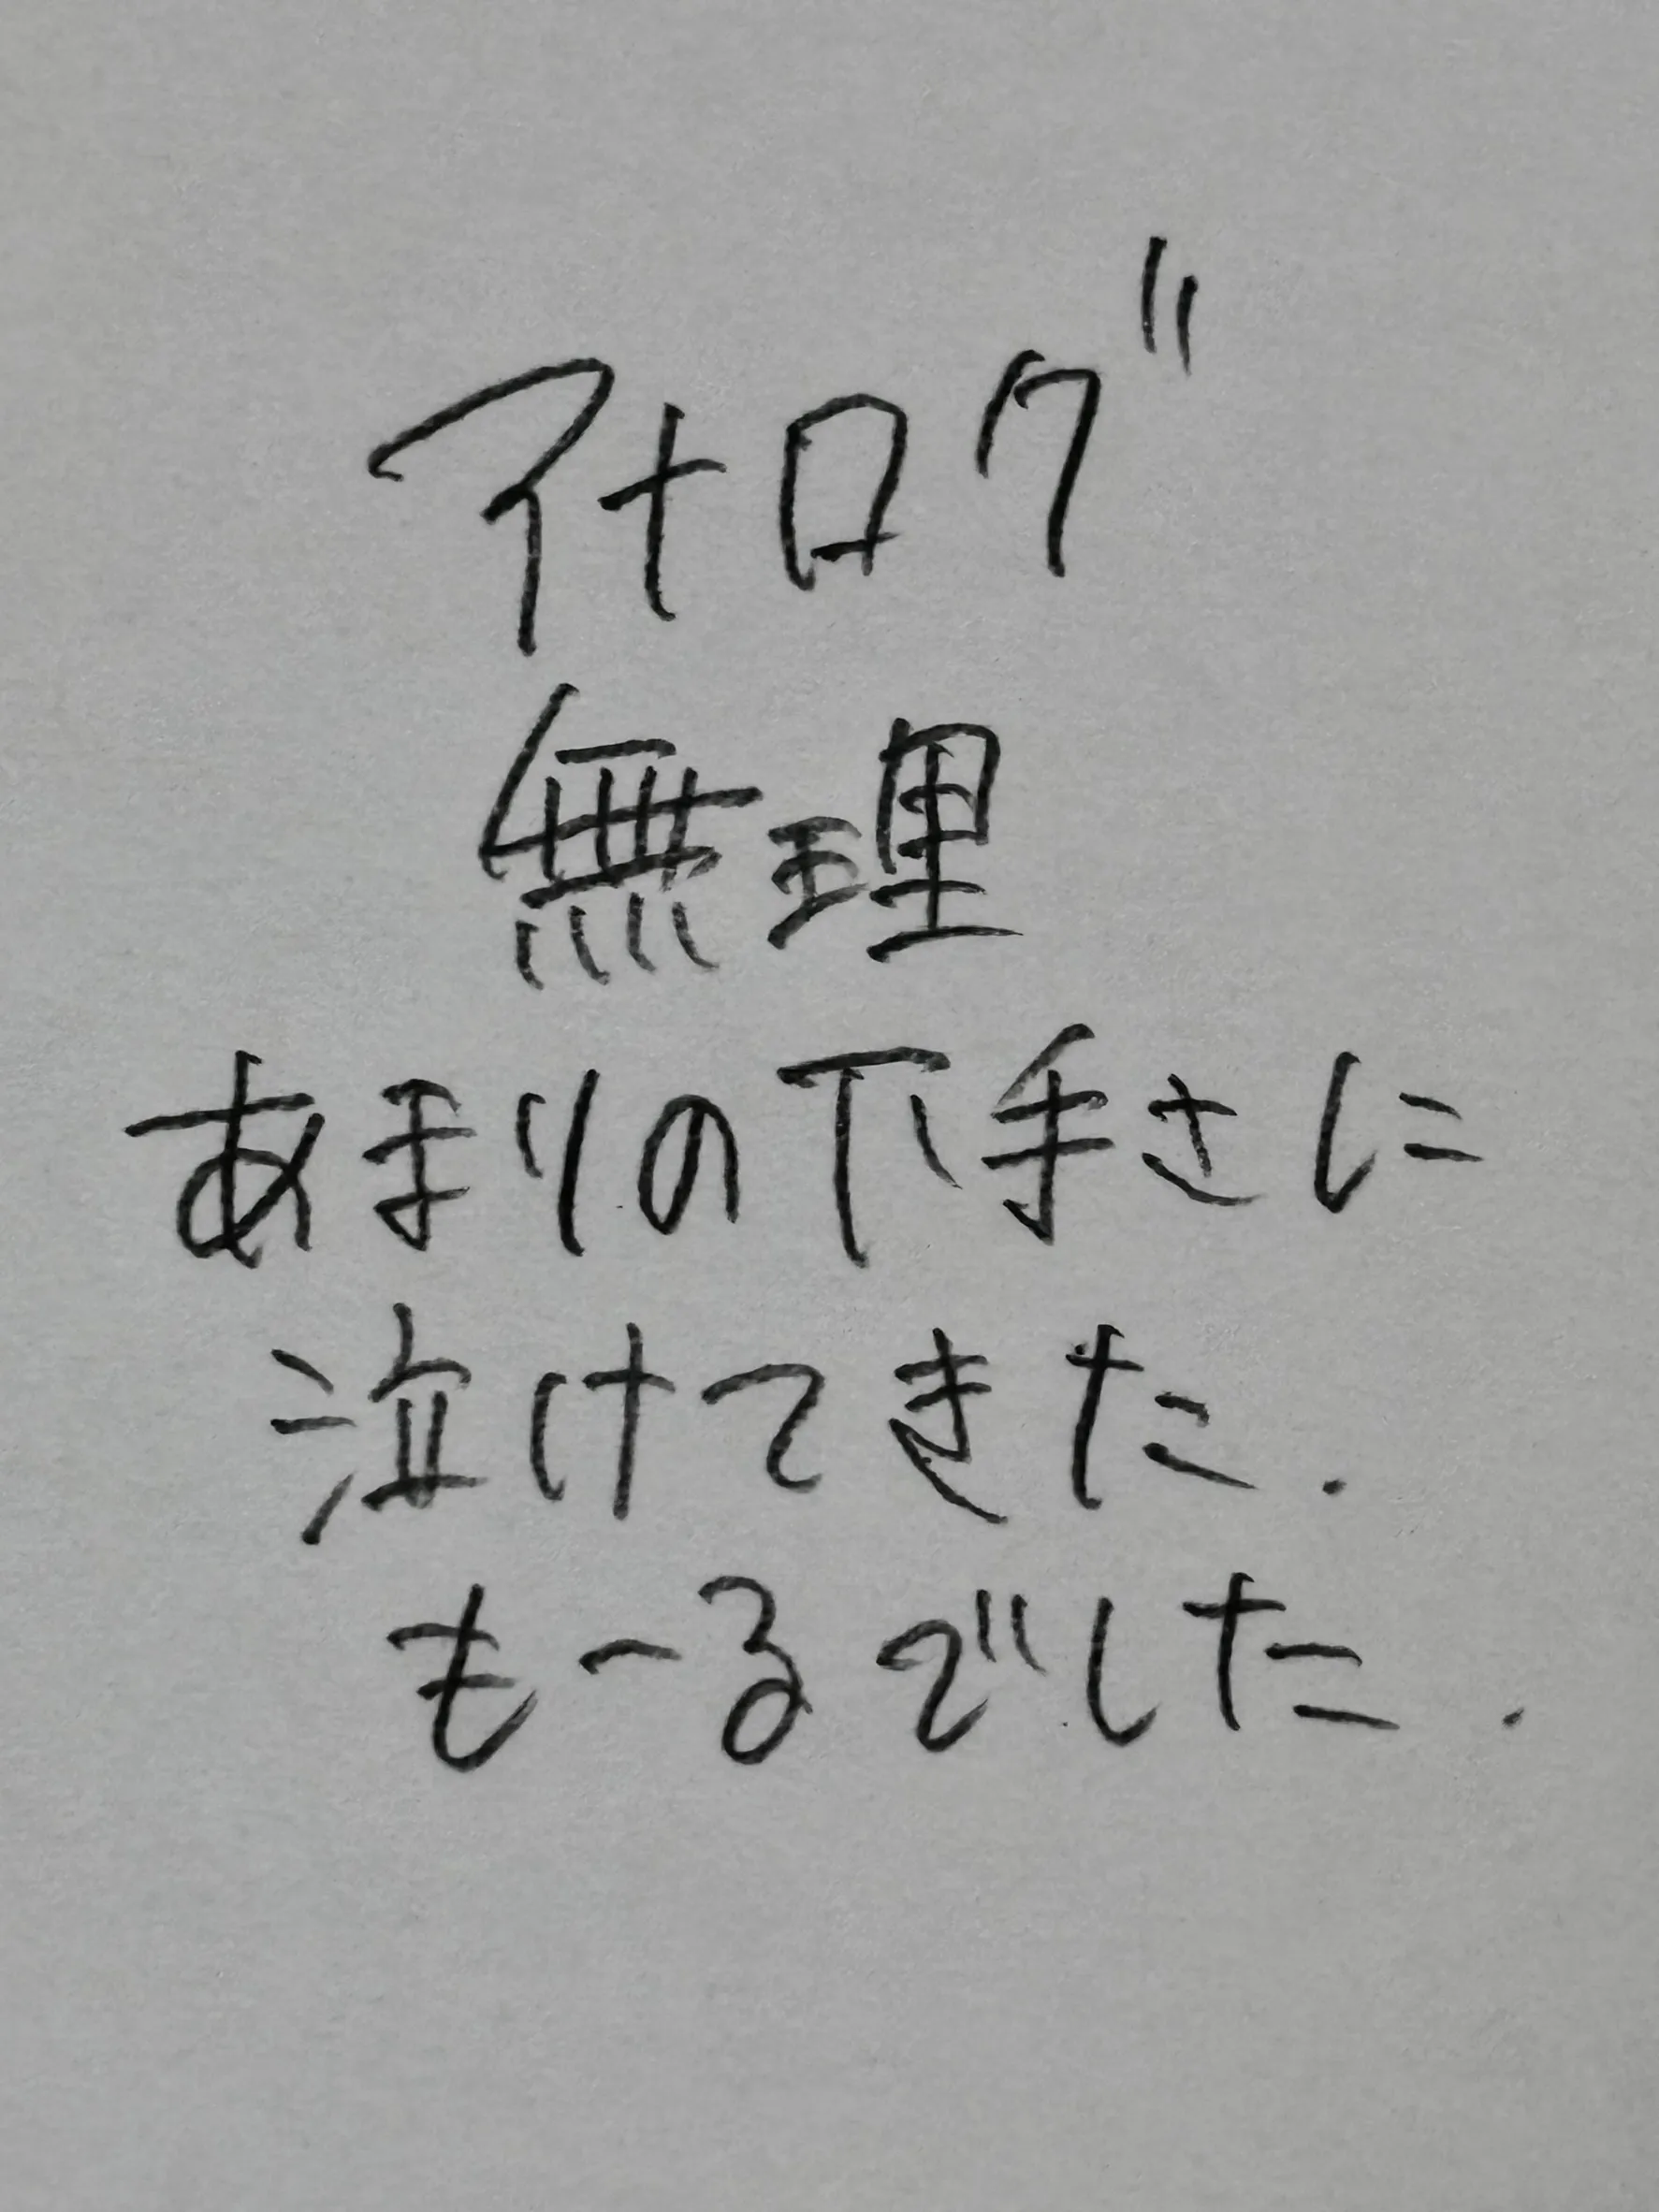 アナログ
無理
あまりの下手さに
泣けてきた.
もーるでした.